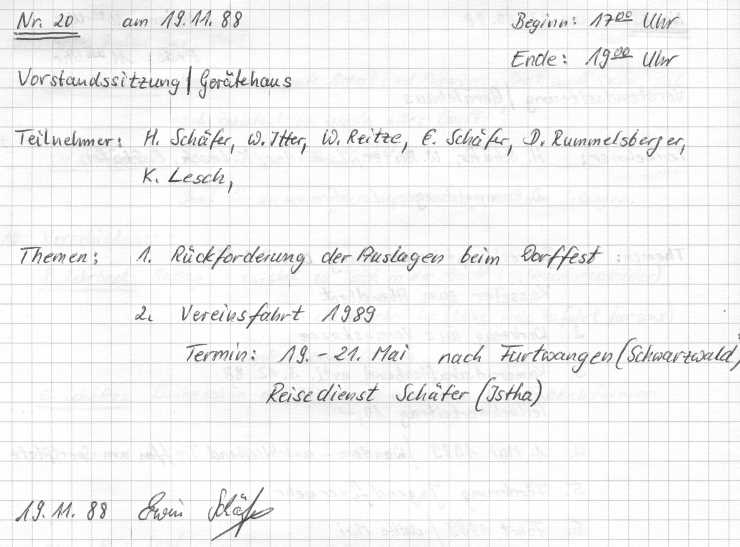 Nr. 20 am 19.11.88 Beginn: 17⁰⁰ Uhr
Ende: 19⁰⁰ Uhr
Vorstandssitzung | Gerätehaus
Teilnehmer: H. Schäfer, W. Itter, W. Reitze, E. Schäfer, D. Rummelsberger,
K. Lesch,
Themen: 1. Rückforderung der Auslagen beim Dorffest
2. Vereinsfahrt 1989
Termin: 19. - 21. Mai nach Furtwangen (Schwarzwald)
Reisedienst Schäfer (Istha)
19.11.88 Erwin Schäfer